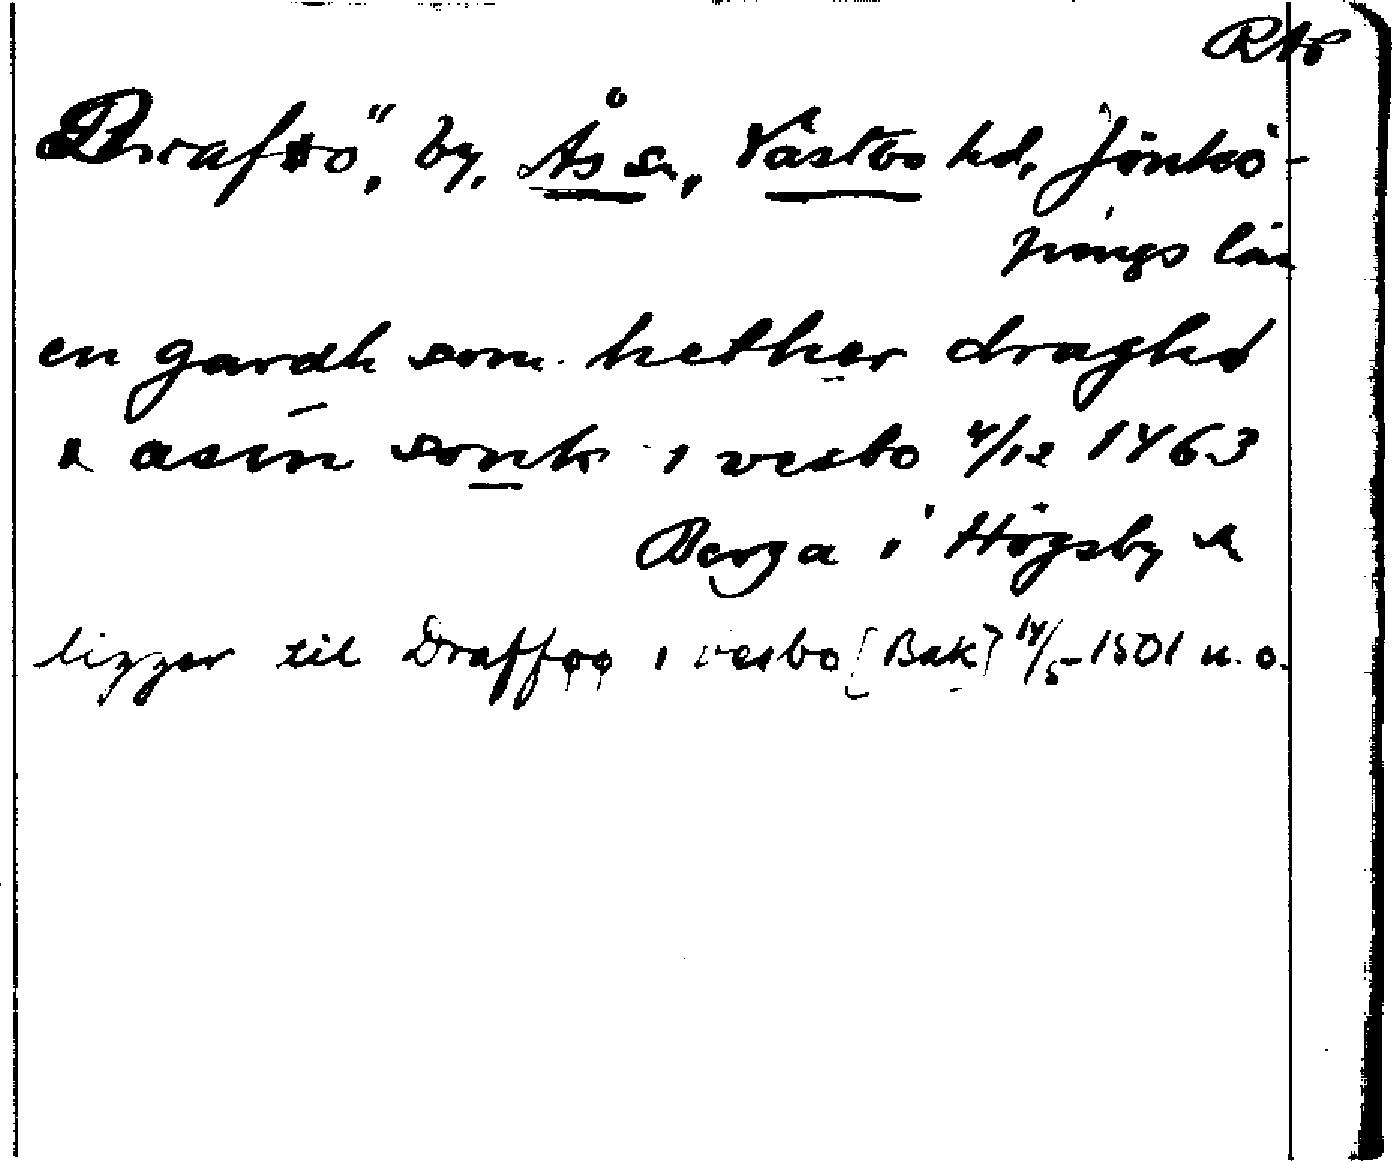 RAp
Draftö, by, Ås sn, Västbo hd, Jönkö-
pings län
en gardh som hether draghø
i asin sonk i vesbo 4/12 1463
Berga i Högsby A
ligger til Drafføø i vesbo [Bak] 14/5 1501 u. o.